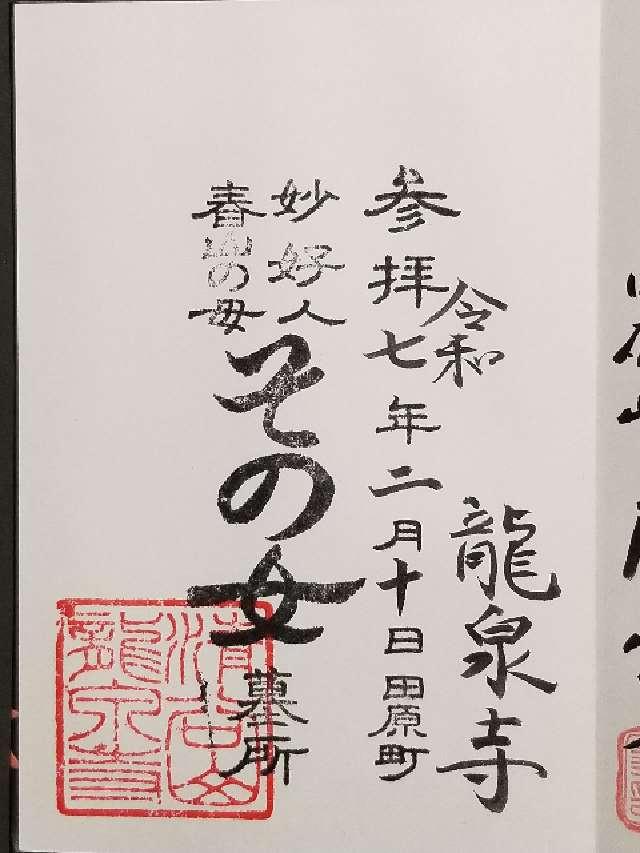 令和
龍泉寺
参拝七年二月十日田原町
妙好人
春山の母
その女
墓所
龍泉寺